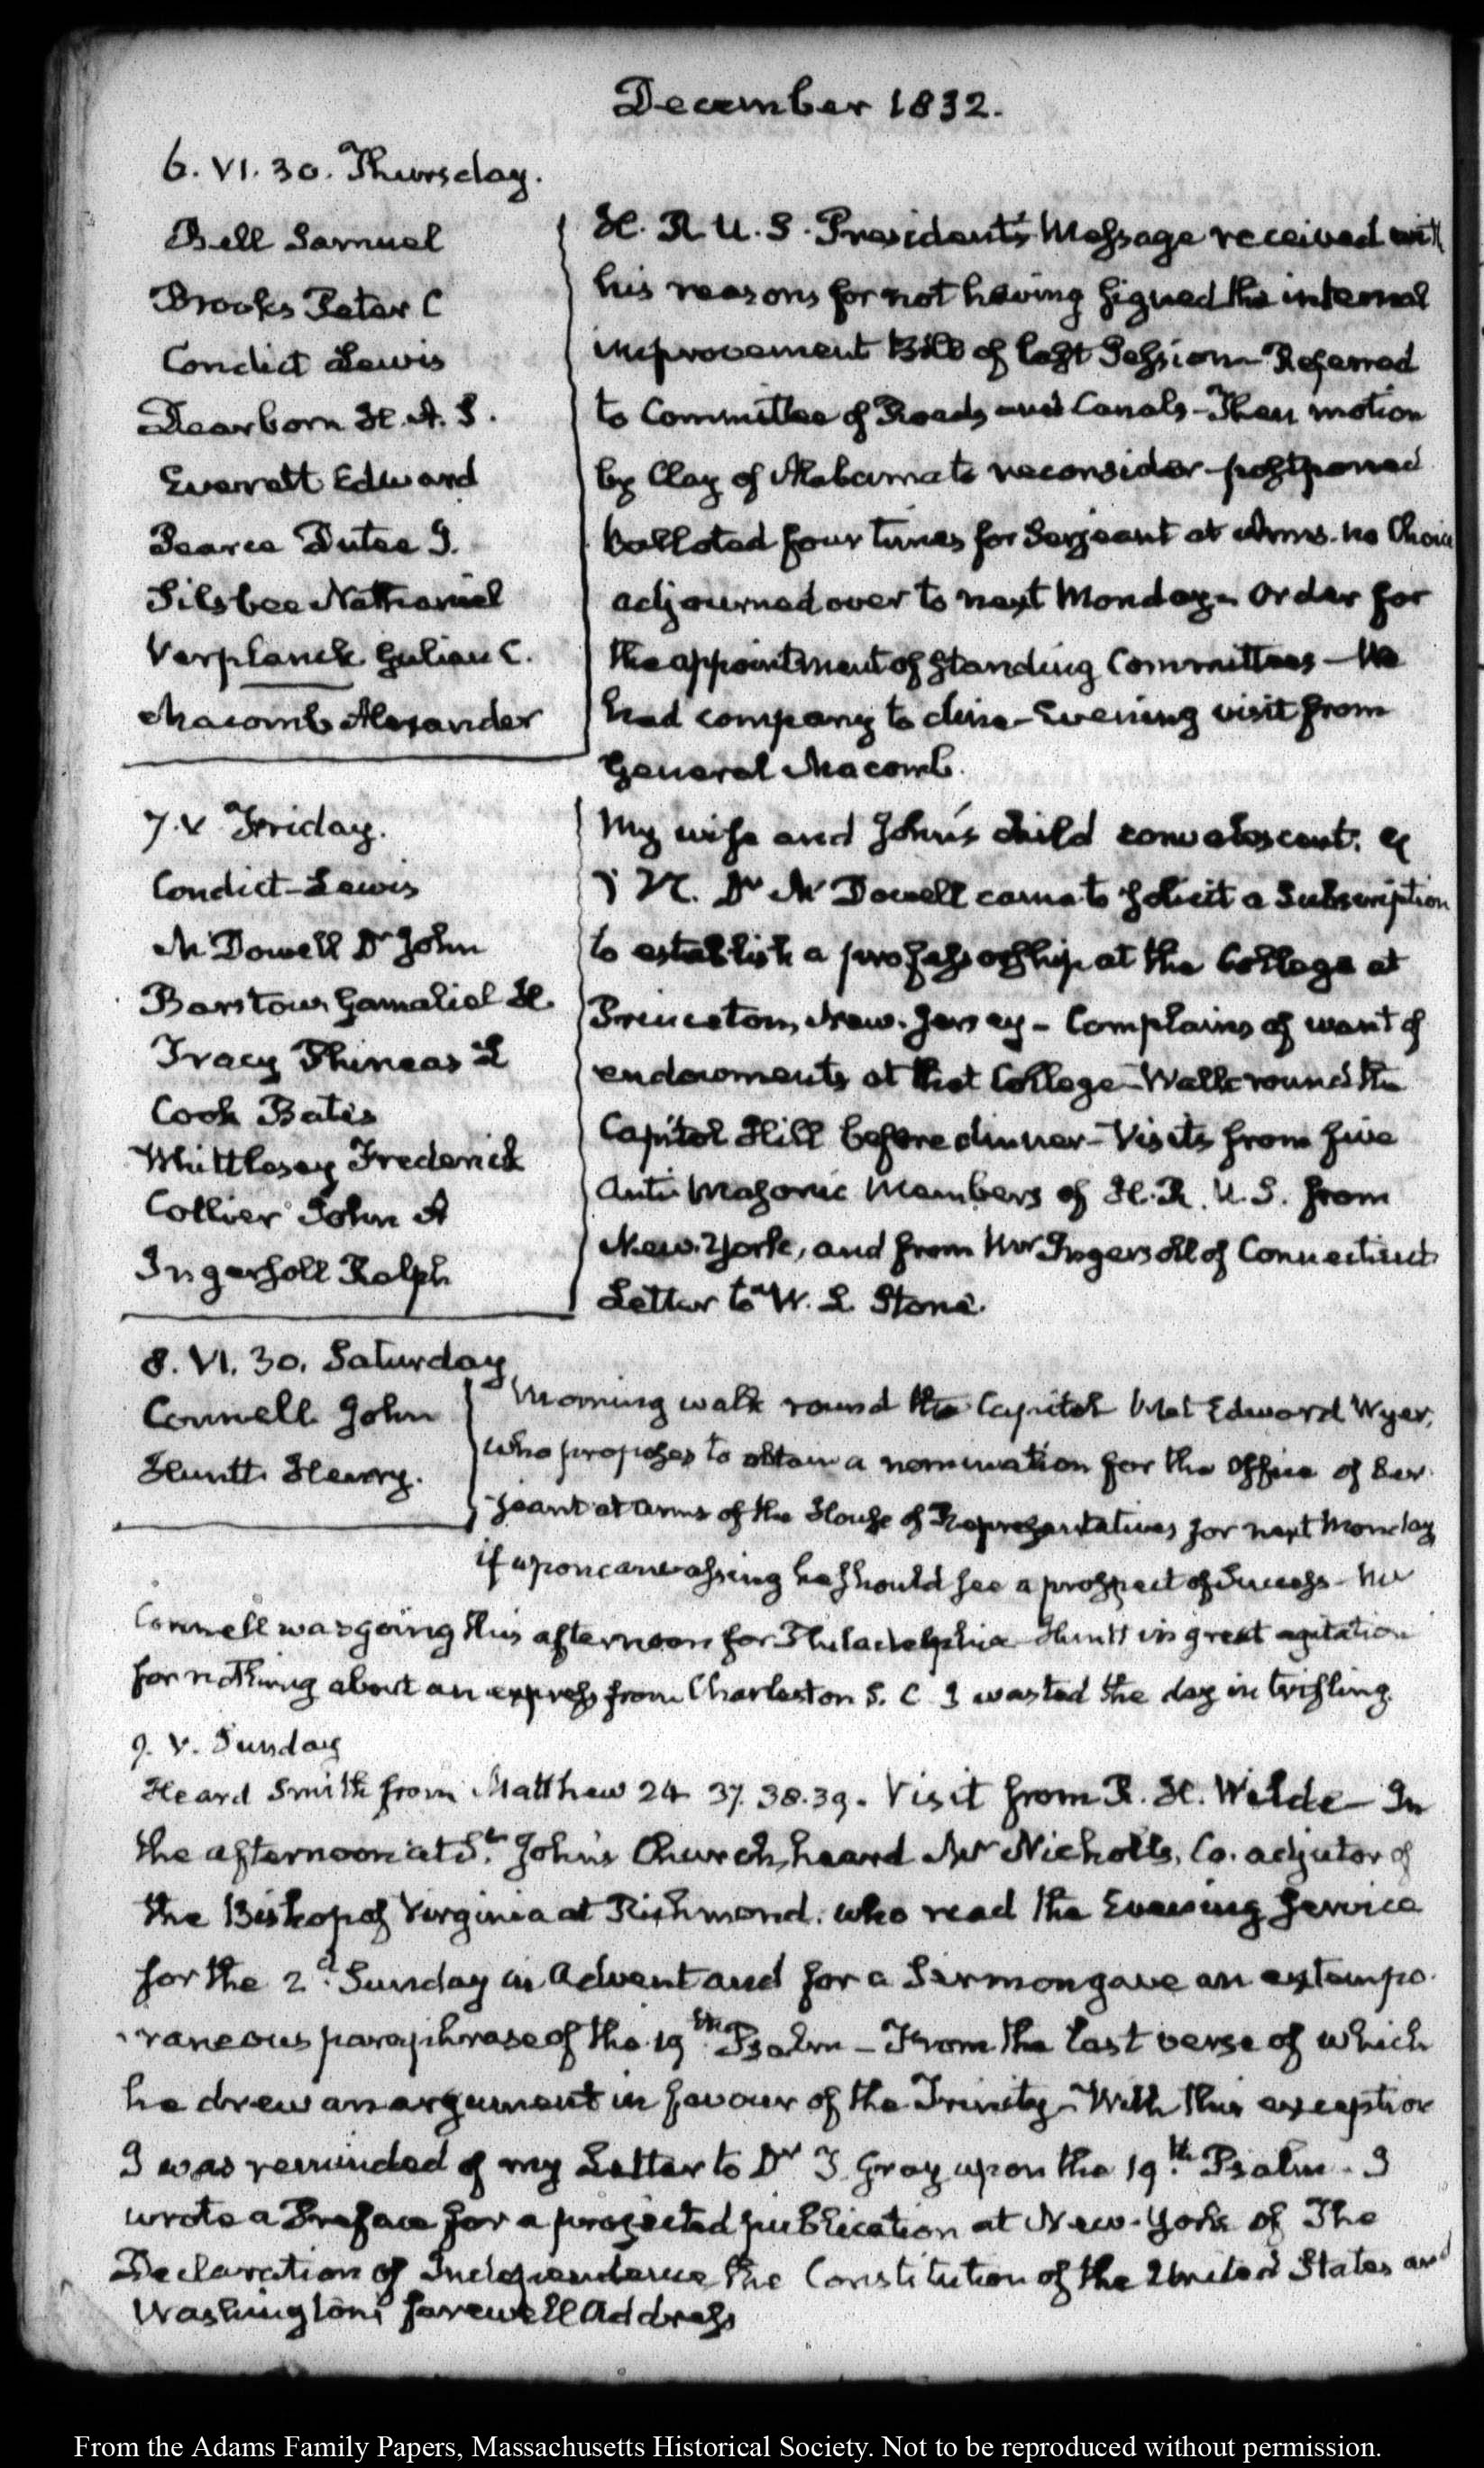 December 1832.
6. VI. 30. Thursday.
Bell Samuel
Brooks Peter C
Condict Lewis
Dearborn H. A. S.
Everett Edward
Pearce Dutee J.
Silsbee Nathaniel
Verplanck Gulian C.
Macomb Alexander
H. R. U. S. President's Message received with
his reasons for not having signed the internal
improvement Bill of last Session - Referred
to Committee of Roads and Canals - Then motion
by Clay of Alabama to reconsider - postponed
balloted four times for Serjeant at Arms. no Choice
adjourned over to next Monday - Order for
the appointment of standing Committees - We
had company to dine - Evening visit from
General Macomb.
7. V Friday.
Condict - Lewis
Mc Dowell Dr John
Barstow Gamaliel H.
Tracy Phineas L
Cook Bates
Whittlesey Frederick
Collier John A
Ingersoll Ralph
My wife and John's child convalescent.
Dr Mc Dowell came to solicit a Subscription
to establish a professorship at the College at
Princeton, New-Jersey - Complains of want of
endowments at that College - Walk round the
Capitol Hill before dinner - Visits from five
Anti Masonic Members of H. R. U. S. from
New-York, and from Mr Ingersoll of Connecticut
Letter to W. L. Stone.
8. VI. 30. Saturday
Connell John
Huntt Henry.
Morning walk round the Capitol Met Edward Wyer,
who proposes to obtain a nomination for the Office of Ser
jeant at Arms of the House of Representatives for next Monday
if upon canvassing he should see a prospect of Success - Mr
Connell was going this afternoon for Philadelphia - Huntt in great agitation
for nothing about an express from Charleston S. C I wasted the day in trifling.
9. V. Sunday
Heard Smith from Matthew 24 37. 38. 39. Visit from R. H. Wilde - In
the afternoon at St. John's Church, heard Mr Nicholts, Co. adjutor of
the Bishop of Virginia at Richmond. who read the Evening Service
for the 2d. Sunday in Advent and for a Sermon gave an extempo-
raneous paraphrase of the 19th. Psalm - From the last verse of which
he drew an argument in favour of the Trinity - With this exception
I was reminded of my Letter to Dr T Gray upon the 19th. Psalm - I
wrote a Preface for a projected publication at New-York of The
Declaration of Independence, the Constitution of the United States and
Washington's farewell Address
From the Adams Family Papers, Massachusetts Historical Society. Not to be reproduced without permission.